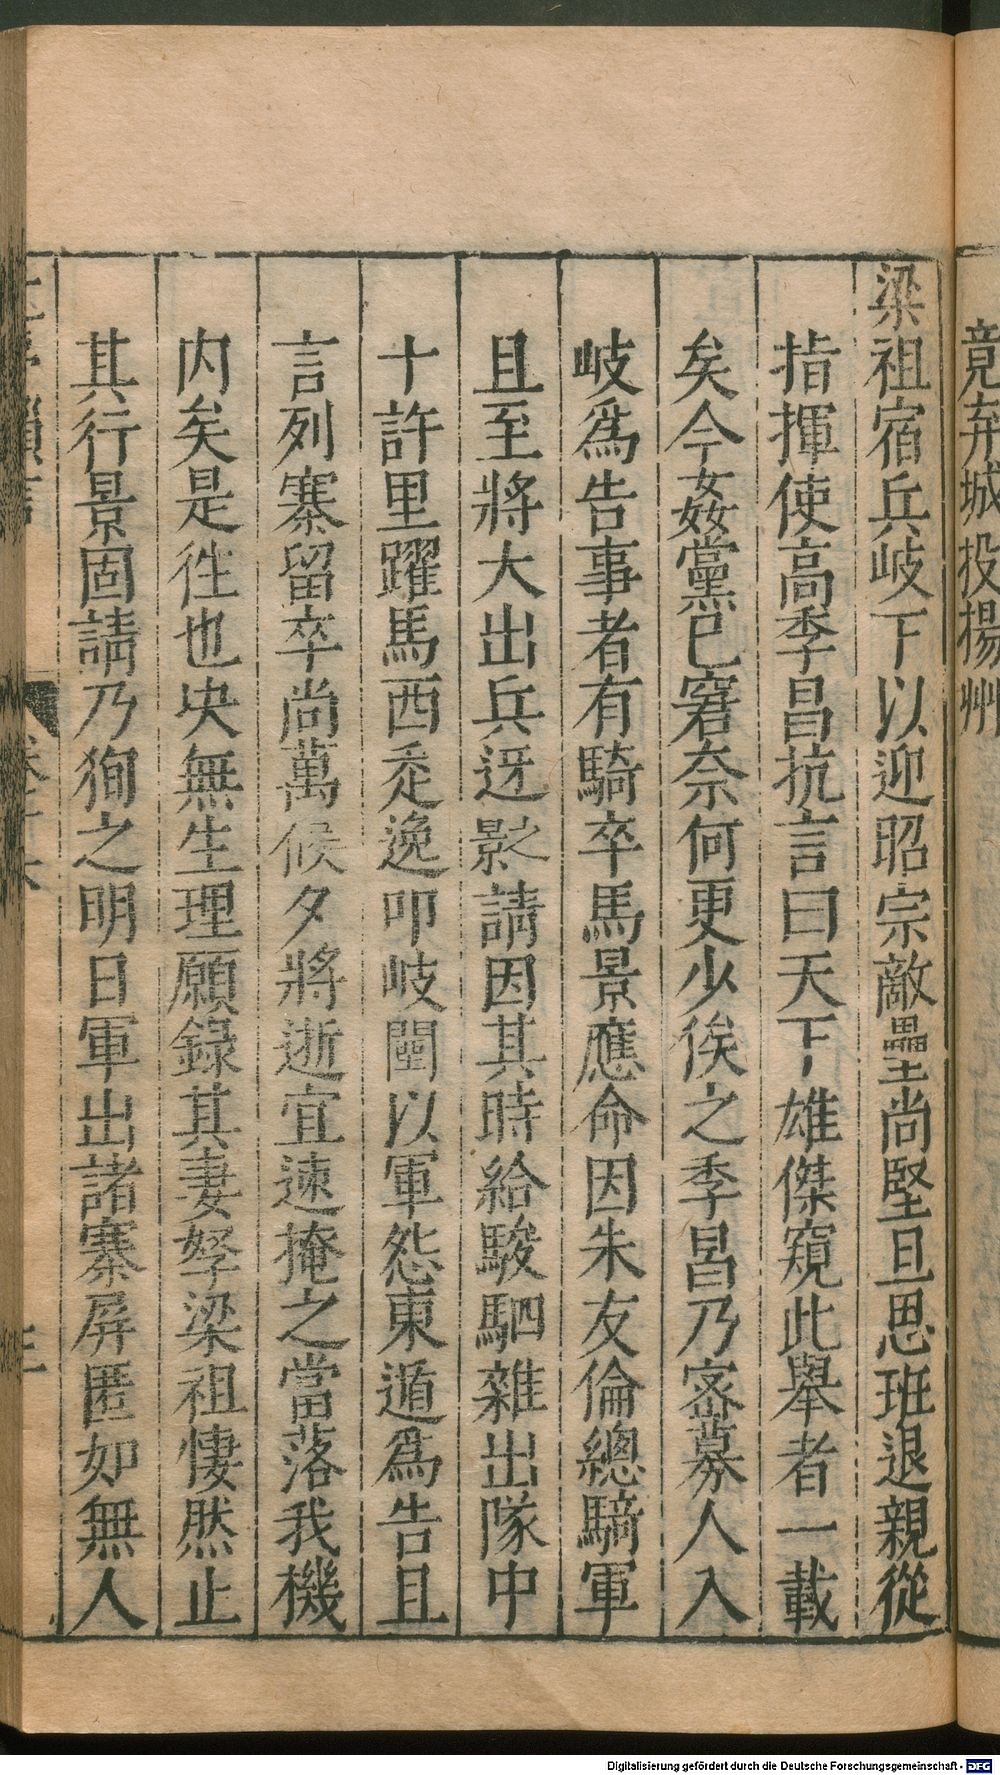 竟弃城投揚州
梁祖宿兵岐下以迎昭宗敵壘尚堅旦思班退親從
指揮使高季昌抗言曰天下雄傑窺此舉者一載
矣今姦黨已窘奈何更少俟之季昌乃密募人入
岐爲告事者有騎卒馬景應命因朱友倫總騎軍
且至將大出兵迓之景請因其時給駿駟雜出隊中
十許里躍馬西走逸叩岐闉以軍怨東遁爲告且
言列寨留卒尚萬候夕將逝宜速掩之當落我機
内矣是徃也決無生理願錄其妻孥梁祖悽然止
其行景固請乃狥之明日軍出諸寨屏匿如無人
Digitalisierung gefördert durch die Deutsche Forschungsgemeinschaft - DFG